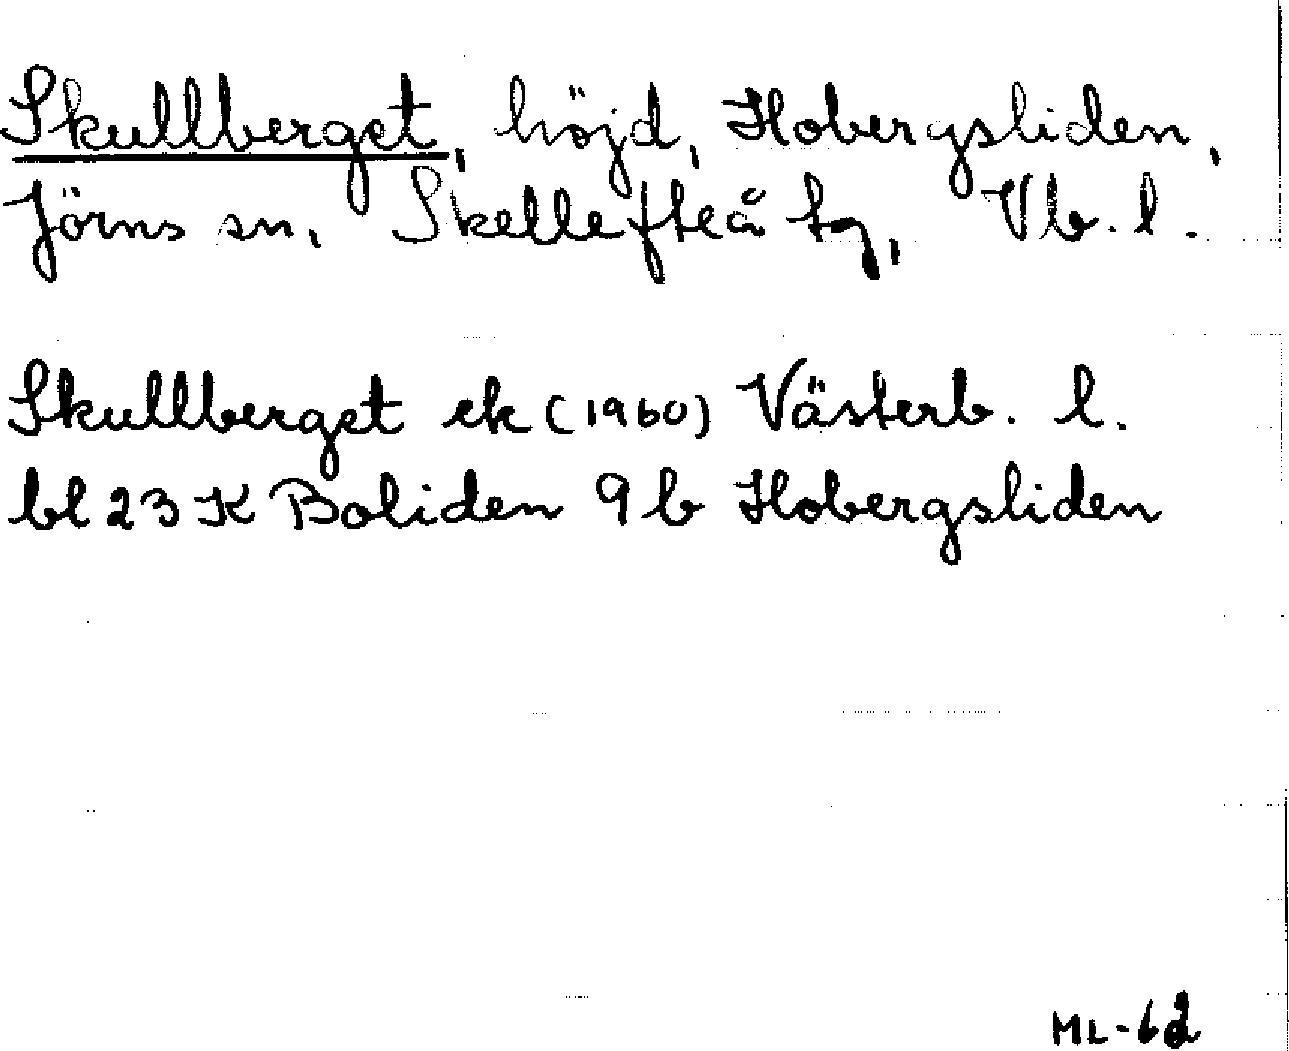 Skullberget, höjd, Hobergsliden,
Jörns sn, Skellefteå tg, Vb. l.
Skullberget ek (1960) Västerb. l.
bl 23 K Boliden 9 b Hobergsliden
ML-62